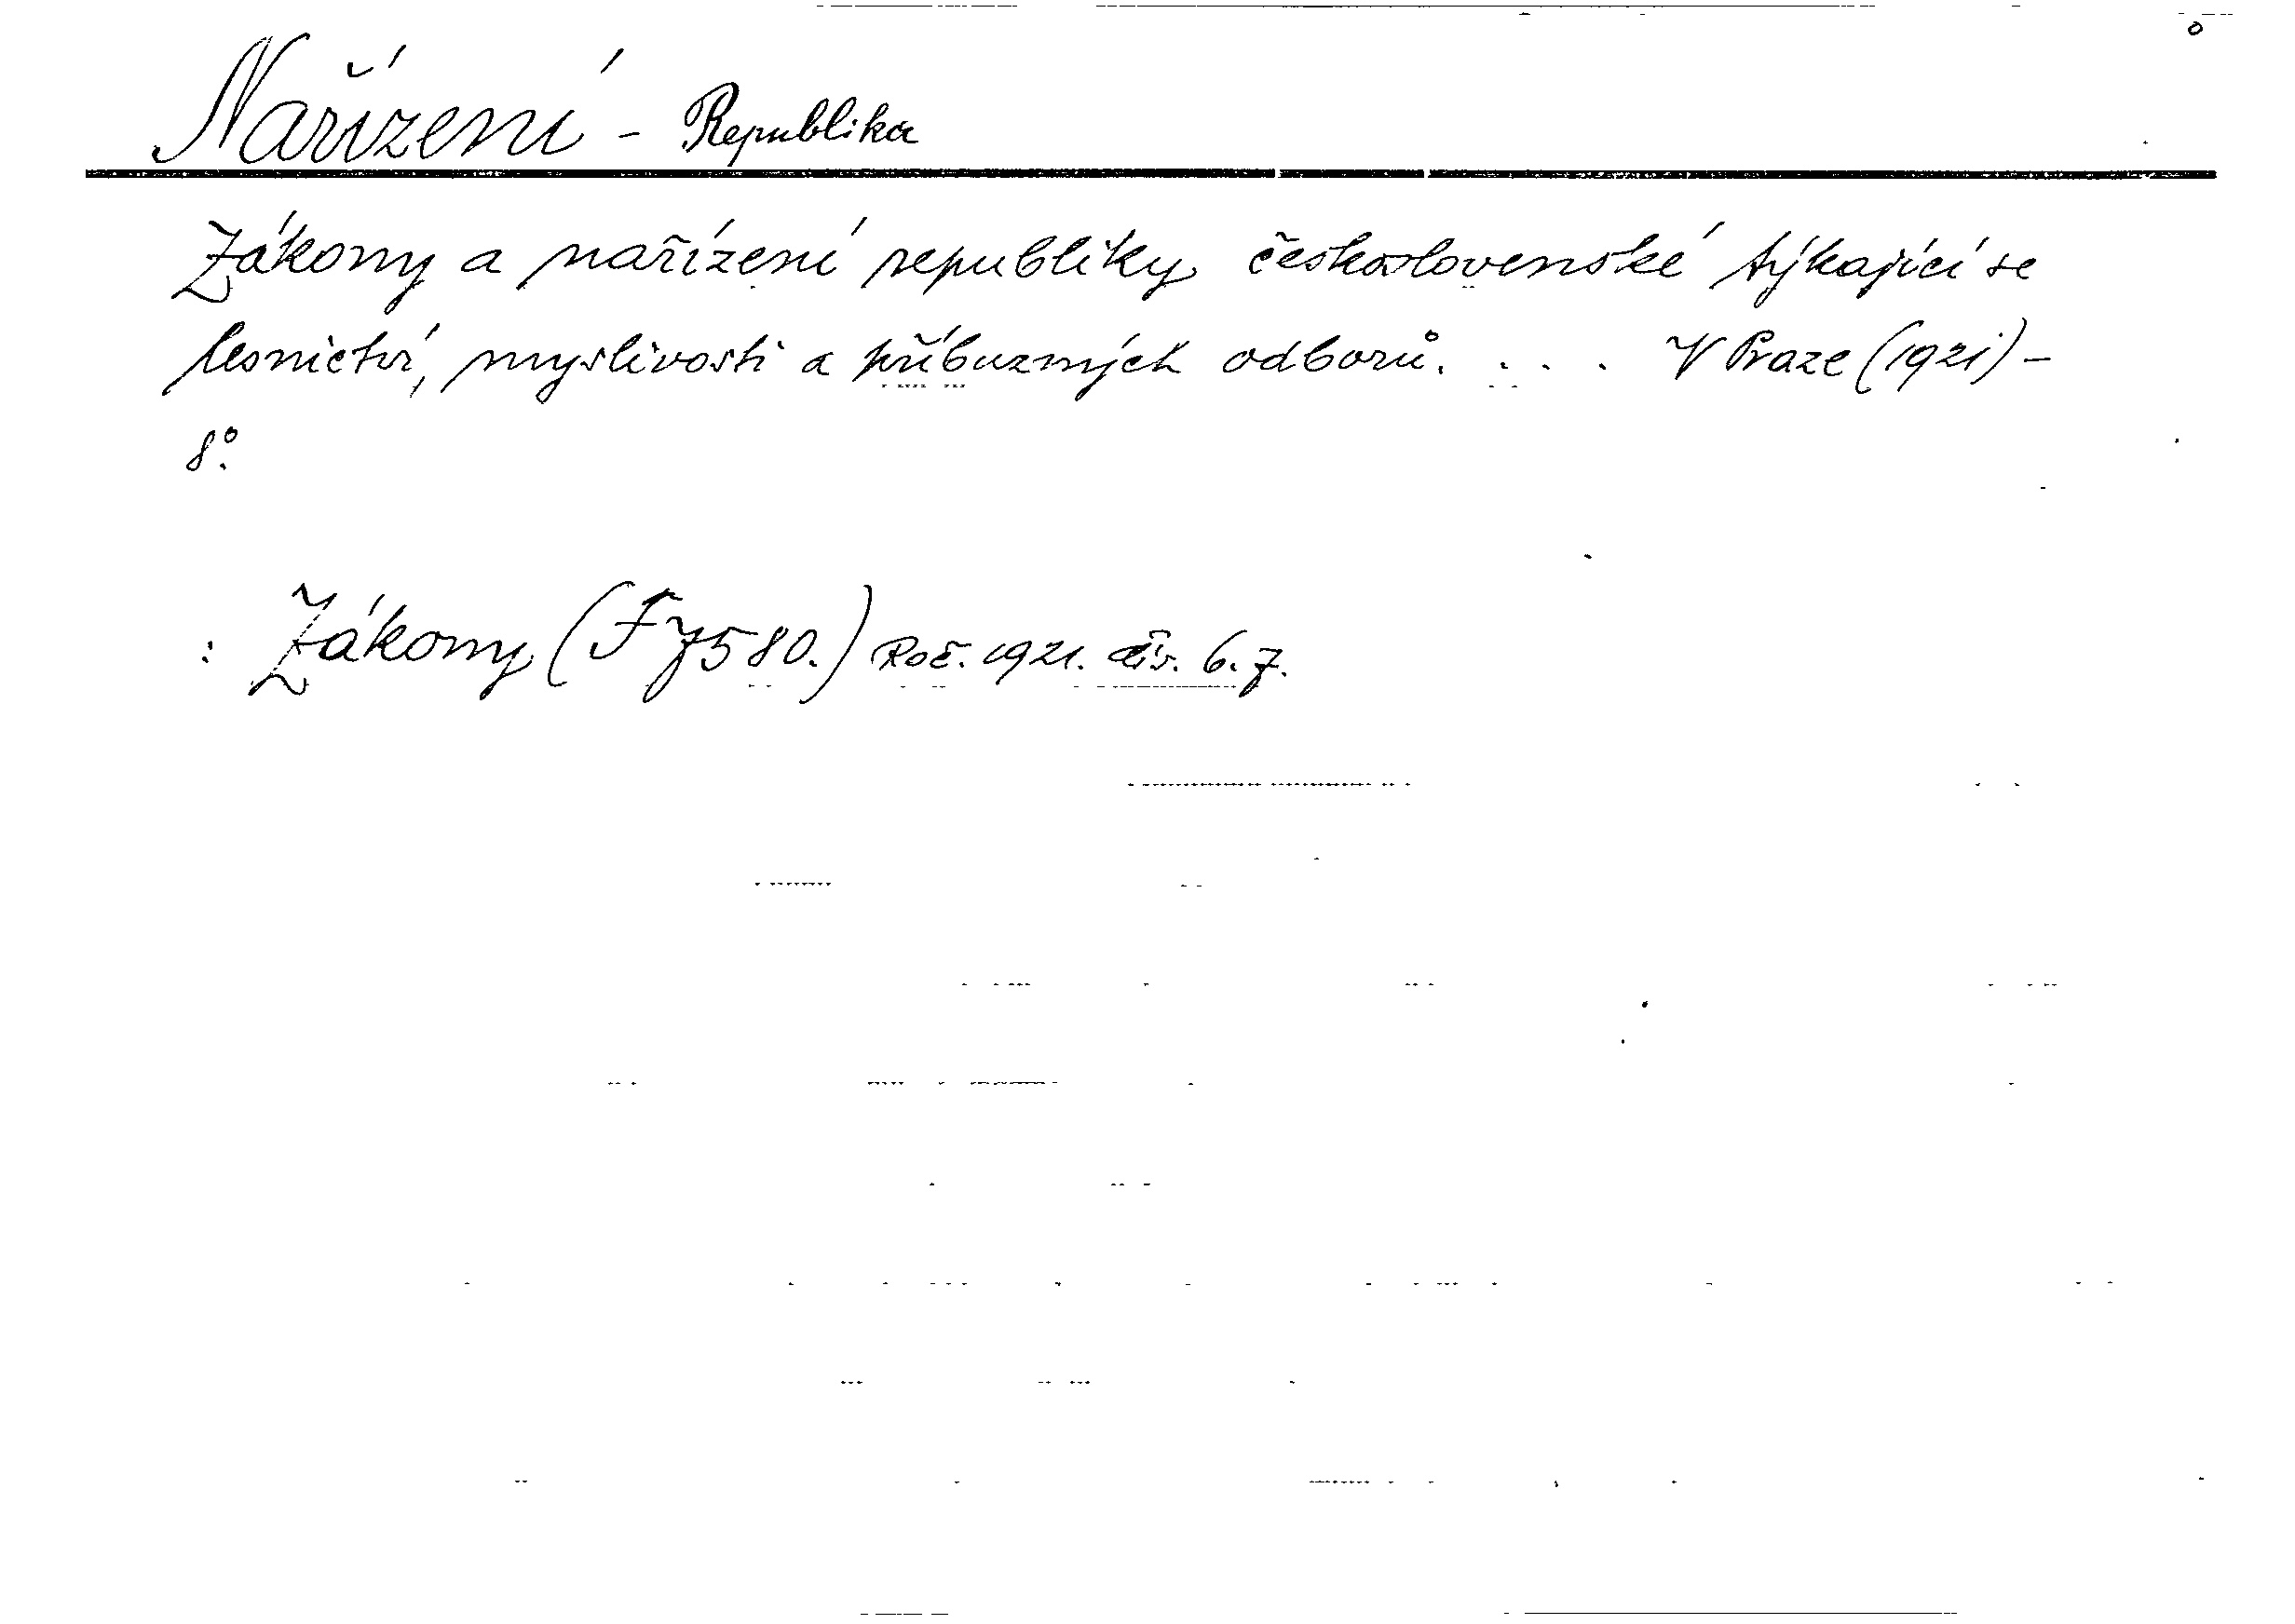 Nařízení - Republika
Zákony a nařízení republiky československé týkající se
lesnictví, myslivosti a příbuzných odborů. . . . V Praze (1921) –
8°.
: Zákony (F 7580.) Roč. 1921. čís. 6. 7.